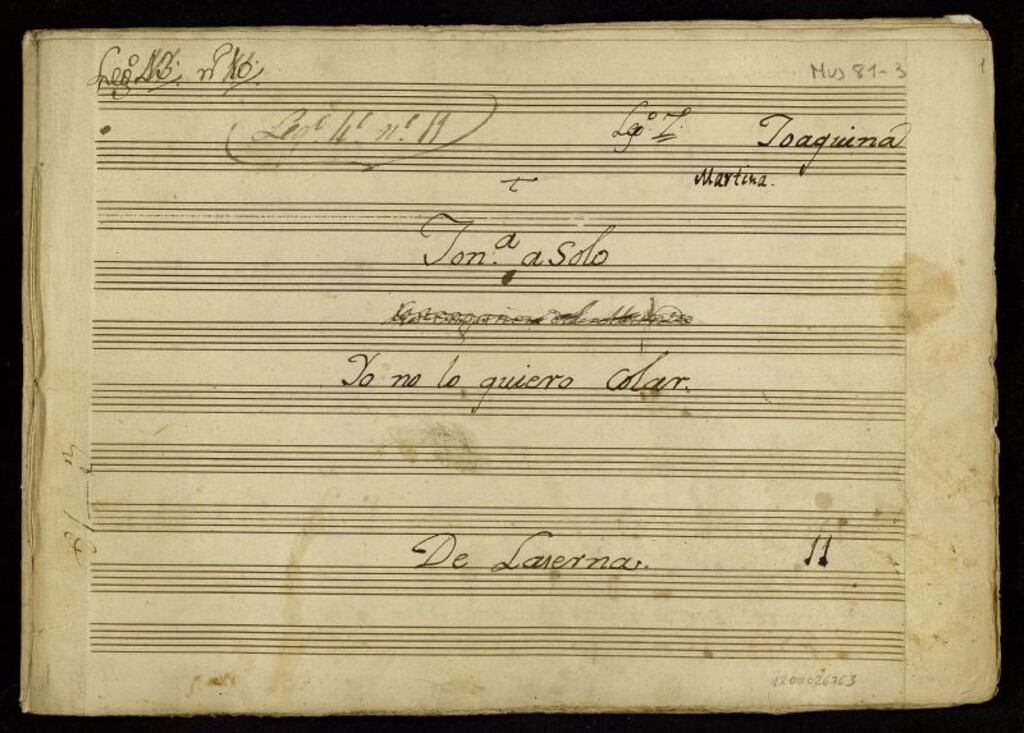 Leg.º
Mus 81-3
1
Leg.º 4.º n.º 11
Leg.º
Joaquina
Martina.
Ton.ª a Solo
Yo no lo quiero Colar.
De Laserna.
11
1200026763